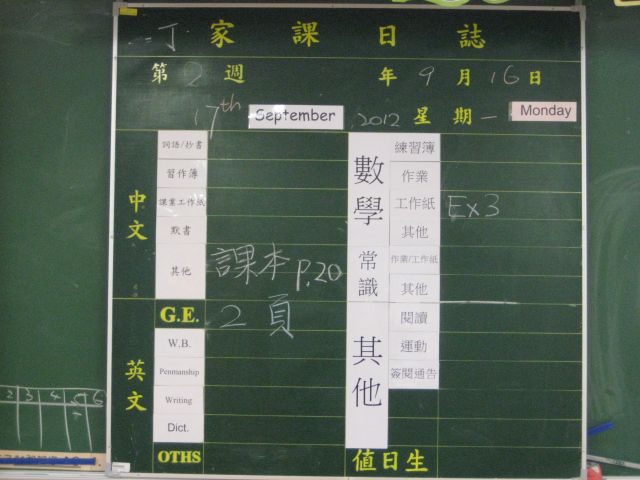 二丁 家課日誌
第2週 年9月16日
17th September 2012 星期一 Monday
中文
詞語/抄書
習作簿
課業工作紙
默書
其他 課本 P.20
英文
G.E. 2頁
W.B.
Penmanship
Writing
Dict.
OTHS
數學
練習簿
作業
工作紙 Ex3
其他
常識
作業/工作紙
其他
其他
閱讀
運動
簽閱通告
值日生
2 3 4 5 6